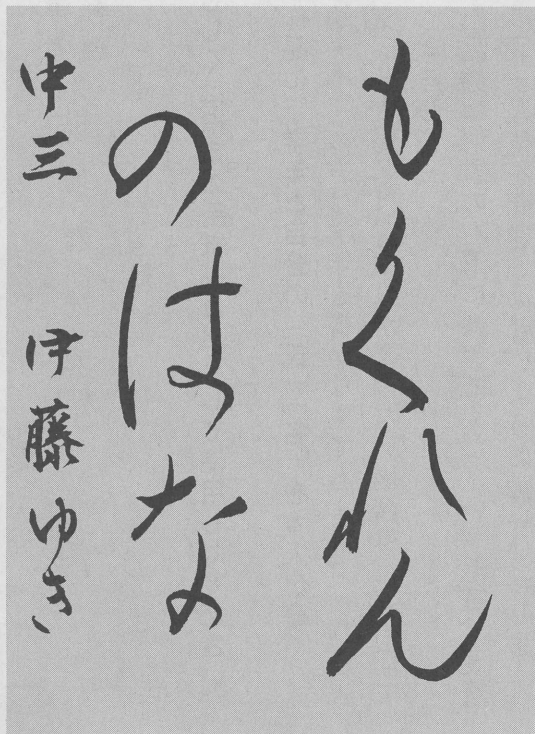 もくれん
のはな
中三 伊藤ゆき